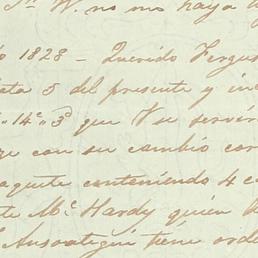 Sr. W. no me haya
1828 - Querido Fergus
5 del presente y in
14„ 3 que V se servir
con su cambio cor
paquete conteniendo 4 c
Mc. Hardy quien
Ansoategui tiene orde